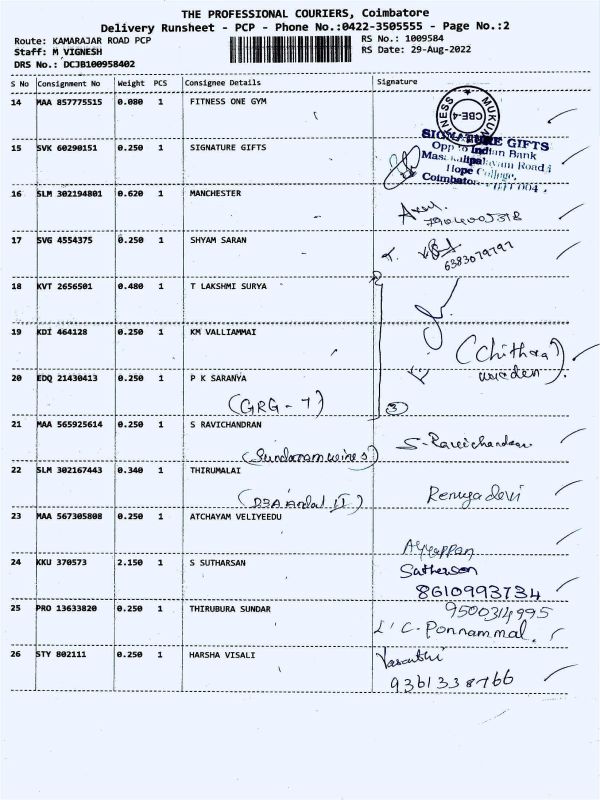 THE PROFESSIONAL COURIERS, Coimbatore
Delivery Runsheet - PCP - Phone No.:0422-3505555 - Page No.:2
Route: KAMARAJAR ROAD PCP
RS No.: 1009584
Staff: M VIGNESH
RS Date: 29-Aug-2022
DRS No.: DCJB100958402
S No Consignment No Weight PCS Consignee Details Signature
14 MAA 857775515 0.080 1 FITNESS ONE GYM
CBE-4
15 SVK 60290151 0.250 1 SIGNATURE GIFTS
SIGNATURE GIFTS
Opp to Indian Bank
Hope College,
16 SLM 302194801 0.620 1 MANCHESTER
17 SVG 4554375 0.250 1 SHYAM SARAN
6383079797
18 KVT 2656501 0.480 1 T LAKSHMI SURYA
19 KDI 464128 0.250 1 KM VALLIAMMAI
(Chithra)
20 EDQ 21430413 0.250 1 P K SARANYA
(GRG - 7)
3
21 MAA 565925614 0.250 1 S RAVICHANDRAN
S-Ravichandran
(Sundaram wines)
22 SLM 302167443 0.340 1 THIRUMALAI
Renugadevi
23 MAA 567305808 0.250 1 ATCHAYAM VELIYEEDU
Ayyappan
24 KKU 370573 2.150 1 S SUTHARSAN
Satherson
8610993734
25 PRO 13633820 0.250 1 THIRUBURA SUNDAR
9500314995
L' C. Ponnammal.
26 STY 802111 0.250 1 HARSHA VISALI
Vasanthi
9361338766